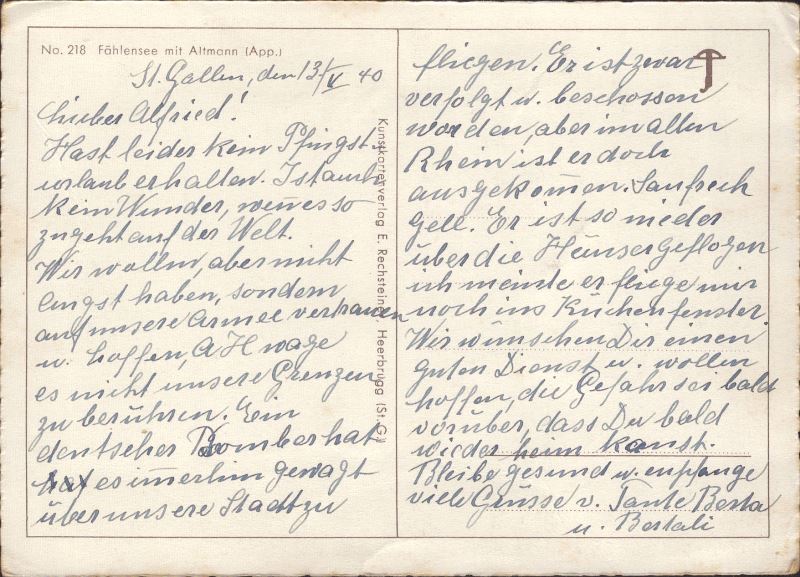 No. 218 Fählensee mit Altmann (App.)
St. Gallen, den 13./V 40
Lieber Alfried!
Hast leider kein Pfingst-
urlaub erhalten. Ist auch
kein Wunder, wenn es so
zugeht auf der Welt.
Wir wollen, aber nicht
Angst haben, sondern
auf unsere Armee vertrauen
u. hoffen, A H wage
es nicht unsere Grenzen
zu berühren. Ein
deutscher Bomber hat
hat es im̅erhin gewagt
über unsere Stadt zu
Kunstkartenverlag E. Rechsteiner, Heerbrugg (St. G.)
fliegen. Er ist zwar
verfolgt u. beschossen
worden, aber im alten
Rhein ist er doch
ausgekom̅en. Saufrech
gell. Er ist so nieder
über die Häuser geflogen
ich meinte er fliege mir
noch ins Küchenfenster.
Wir wünschen Dir einen
guten Dienst u. wollen
hoffen, die Gefahr sei bald
vorüber, dass Du bald
wieder heim kanst.
Bleibe gesund u. empfange
viele Grüsse v. Tante Berta
u. Bertali